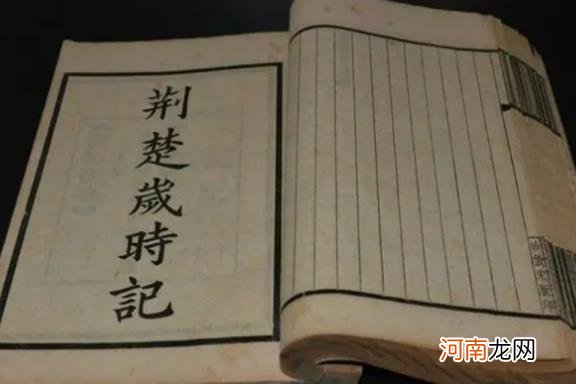 荆楚歲時記
河南龙网